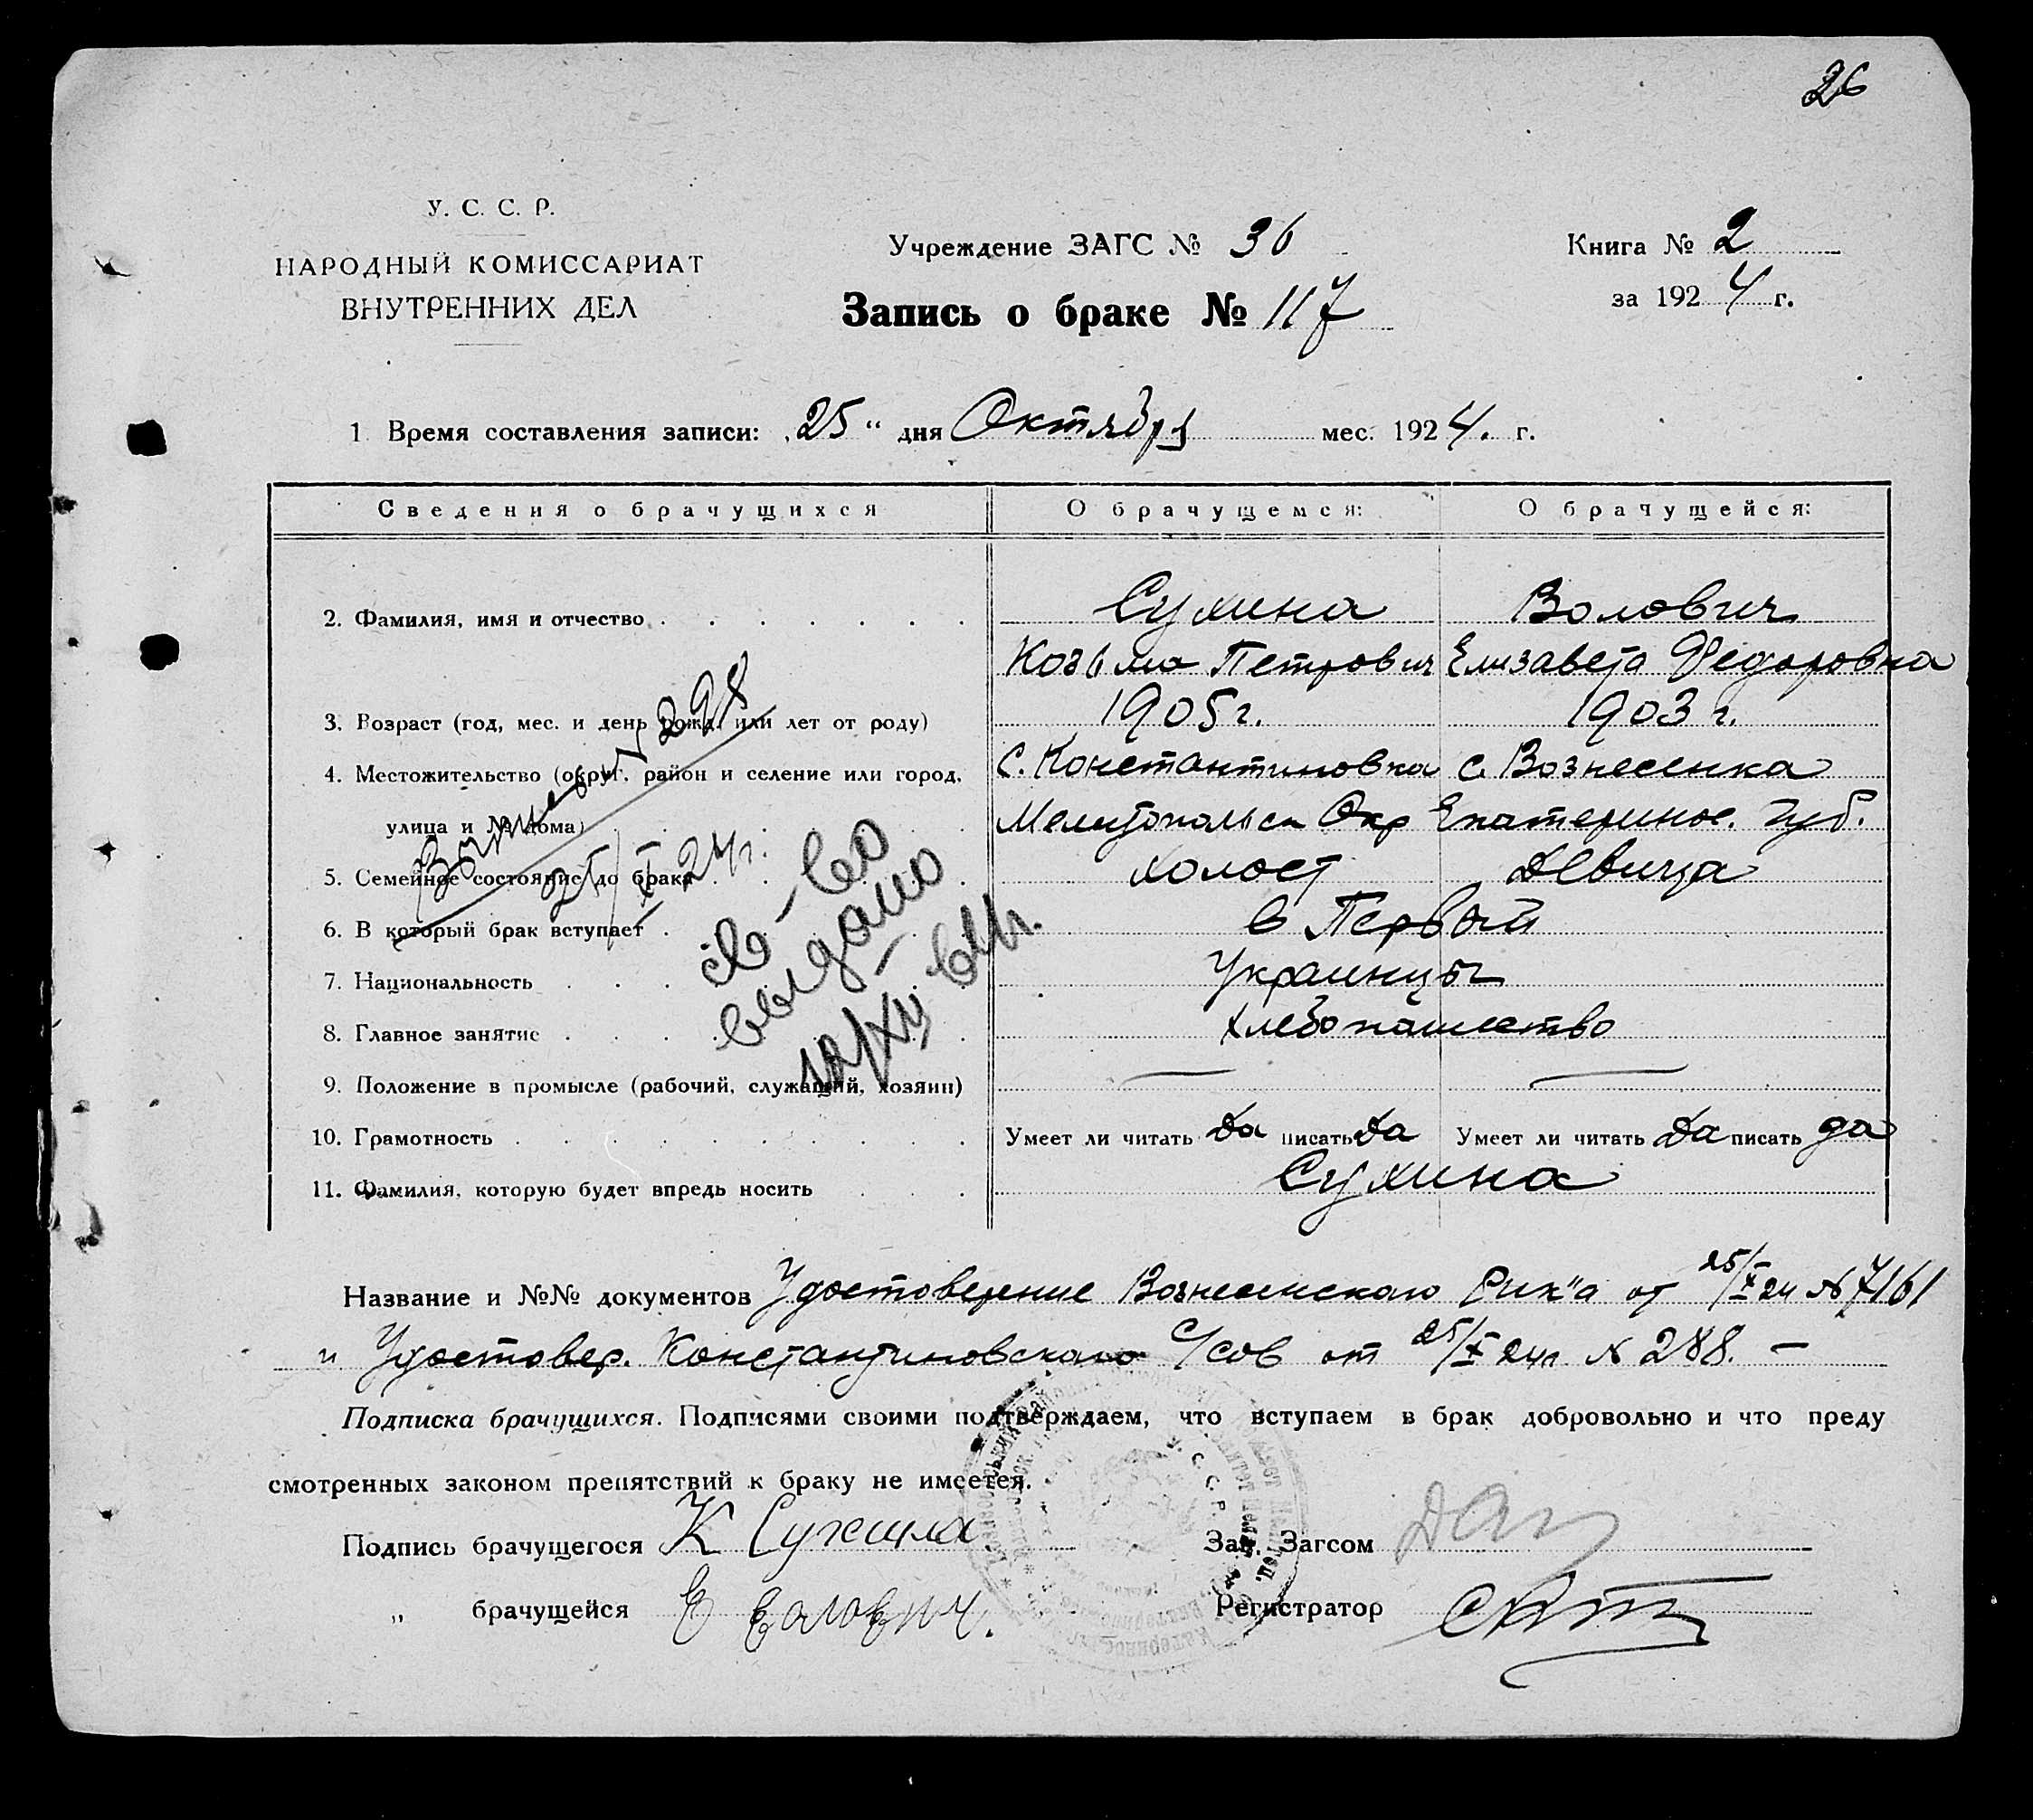 26
У. С. С. Р.
НАРОДНЫЙ КОМИССАРИАТ
ВНУТРЕННИХ ДЕЛ
Учреждение ЗАГС № 36
Запись о браке № 117
Книга № 2
за 1924 г.
1 Время составления записи: „25“ дня Октября мес. 1924. г.
Сведения о брачущихся О брачущемся: О брачущейся:
2. Фамилия, имя и отчество Сухина Волович
Козьма Петрович Елизавета Федоровна
3. Возраст (год, мес. и день рожд. или лет от роду) 1905 г. 1903 г.
4. Местожительство (округ, район и селение или город, с. Константиновка с. Вознесенка
улица и № дома) Мелитопольск Окр Екатеринос. Губ.
5. Семейное состояние до брака холост Девица
6. В который брак вступает в Первый
7. Национальность Украинцы
8. Главное занятие Хлебопашество
9. Положение в промысле (рабочий, служащий, хозяин) — —
10. Грамотность Умеет ли читать Да писать Да Умеет ли читать Да писать да
11. Фамилия, которую будет впредь носить Сухина
№ 298
25/X 24 г.
св-во
выдано
Название и №№ документов Удостоверение Вознесенского Рик"а от 25/X 24 № 7161
и Удостовер. Константиновского С/сов от 25/X 24 г. № 288. —
Подписка брачущихся. Подписями своими подтверждаем, что вступаем в брак добровольно и что преду
смотренных законом препятствий к браку не имеется.
Подпись брачущегося К Сухина
Зав. Загсом
„ брачущейся Е Волович.
Регистратор